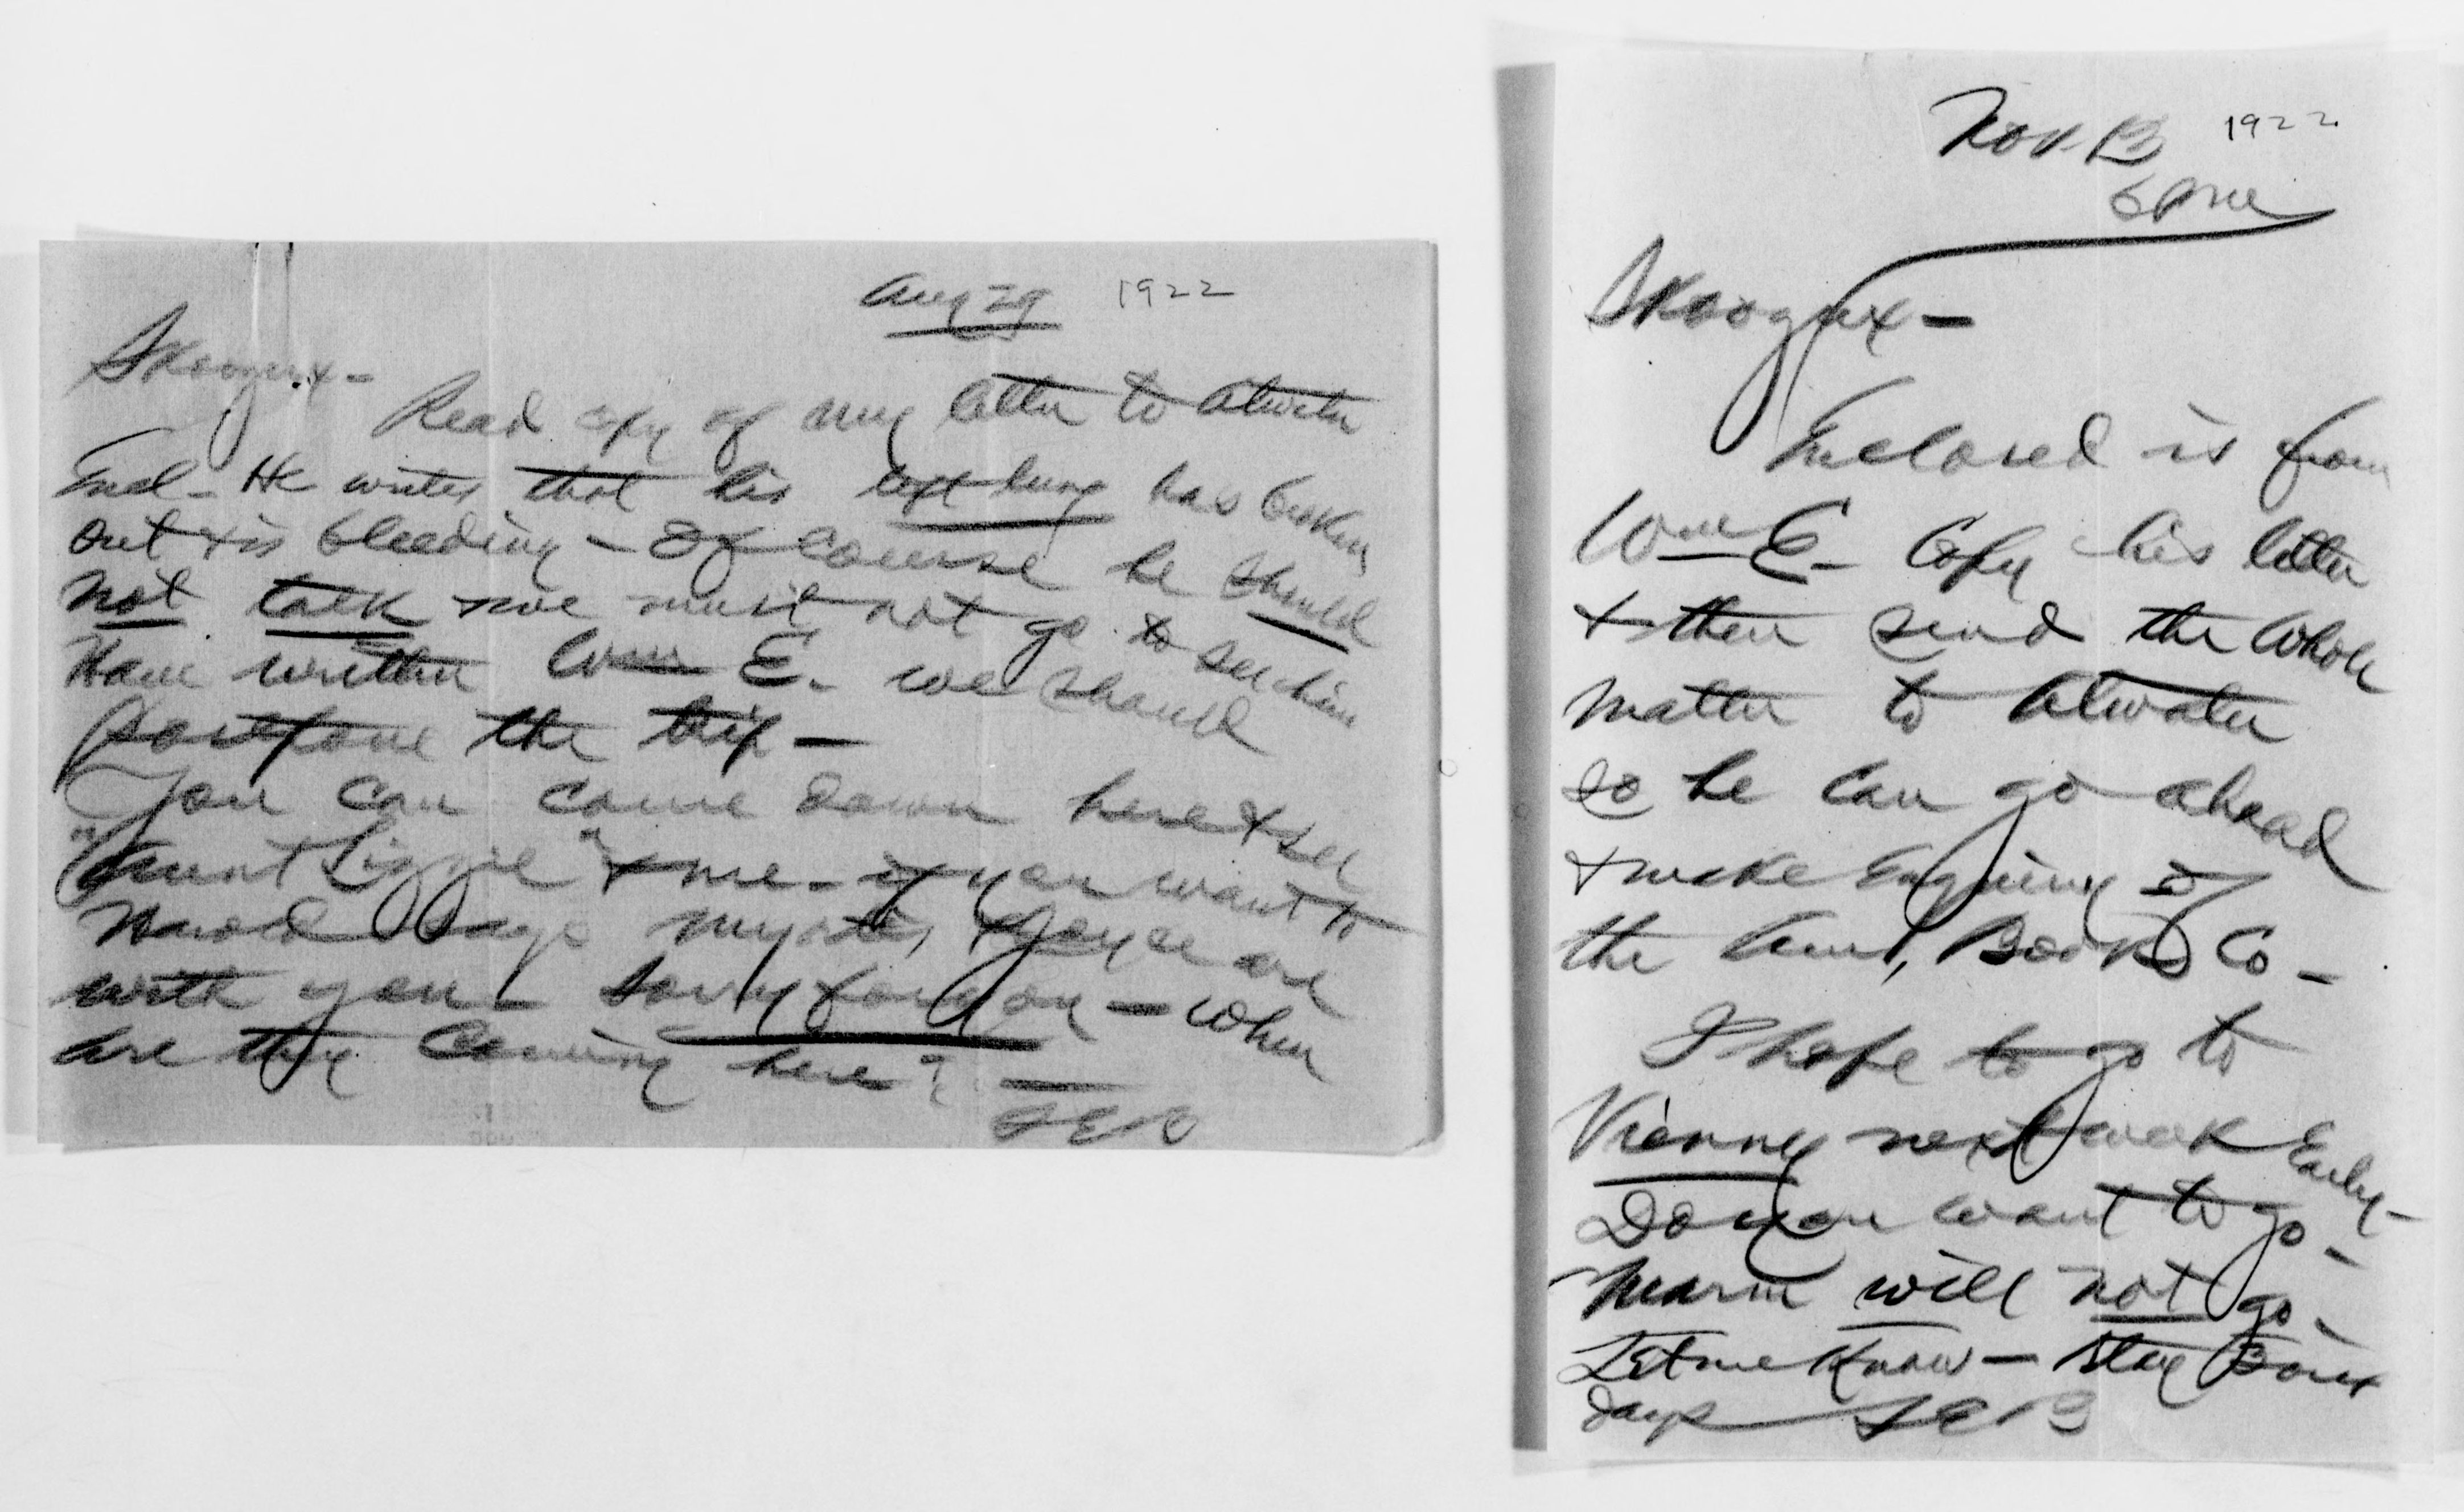 Aug 29 1922
Skoogux -
Read copy of my letter to Atwater
Encl - He writes that his left lung has broken
out & is bleeding - Of course he should
not talk & we must not go to see him
Have written Wm E. we should
postpone the trip -
You can come down here & see
"Aunt Lizzie" & me - if you want to
Harold says & Joyce are
with you - Sorry for you - When
are they coming here? -
SEB
Nov. 13 1922
6 PM
Skoogux -
Enclosed is from
Wm E - Copy his letter
& then send the whole
matter to Atwater
so he can go ahead
& make Enquiry of
the Am, Book Co -
I hope to go to
Vienny next week Early -
Do you want to go -
Marm will not go -
Let me know - Stay 3 or 4
days SEB